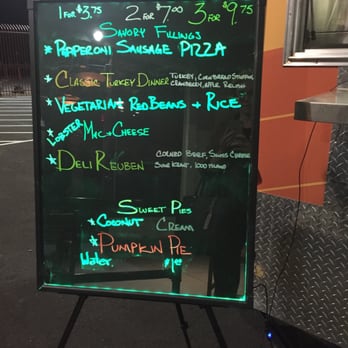 1 FOR $3.75 2 FOR $7.00 3 FOR $9.75
SAVORY FILLINGS
* PEPPERONI SAUSAGE PIZZA
* CLASSIC TURKEY DINNER TURKEY, CORNBREAD STUFFING,
CRANBERRY, APPLE RELISH
* VEGETARIAN RED BEANS + RICE
* LOBSTER MAC & CHEESE
* DELI REUBEN CORNED BEEF, SWISS CHEESE
1000 ISLAND
SWEET PIES
* COCONUT CREAM
* PUMPKIN PIE
Water